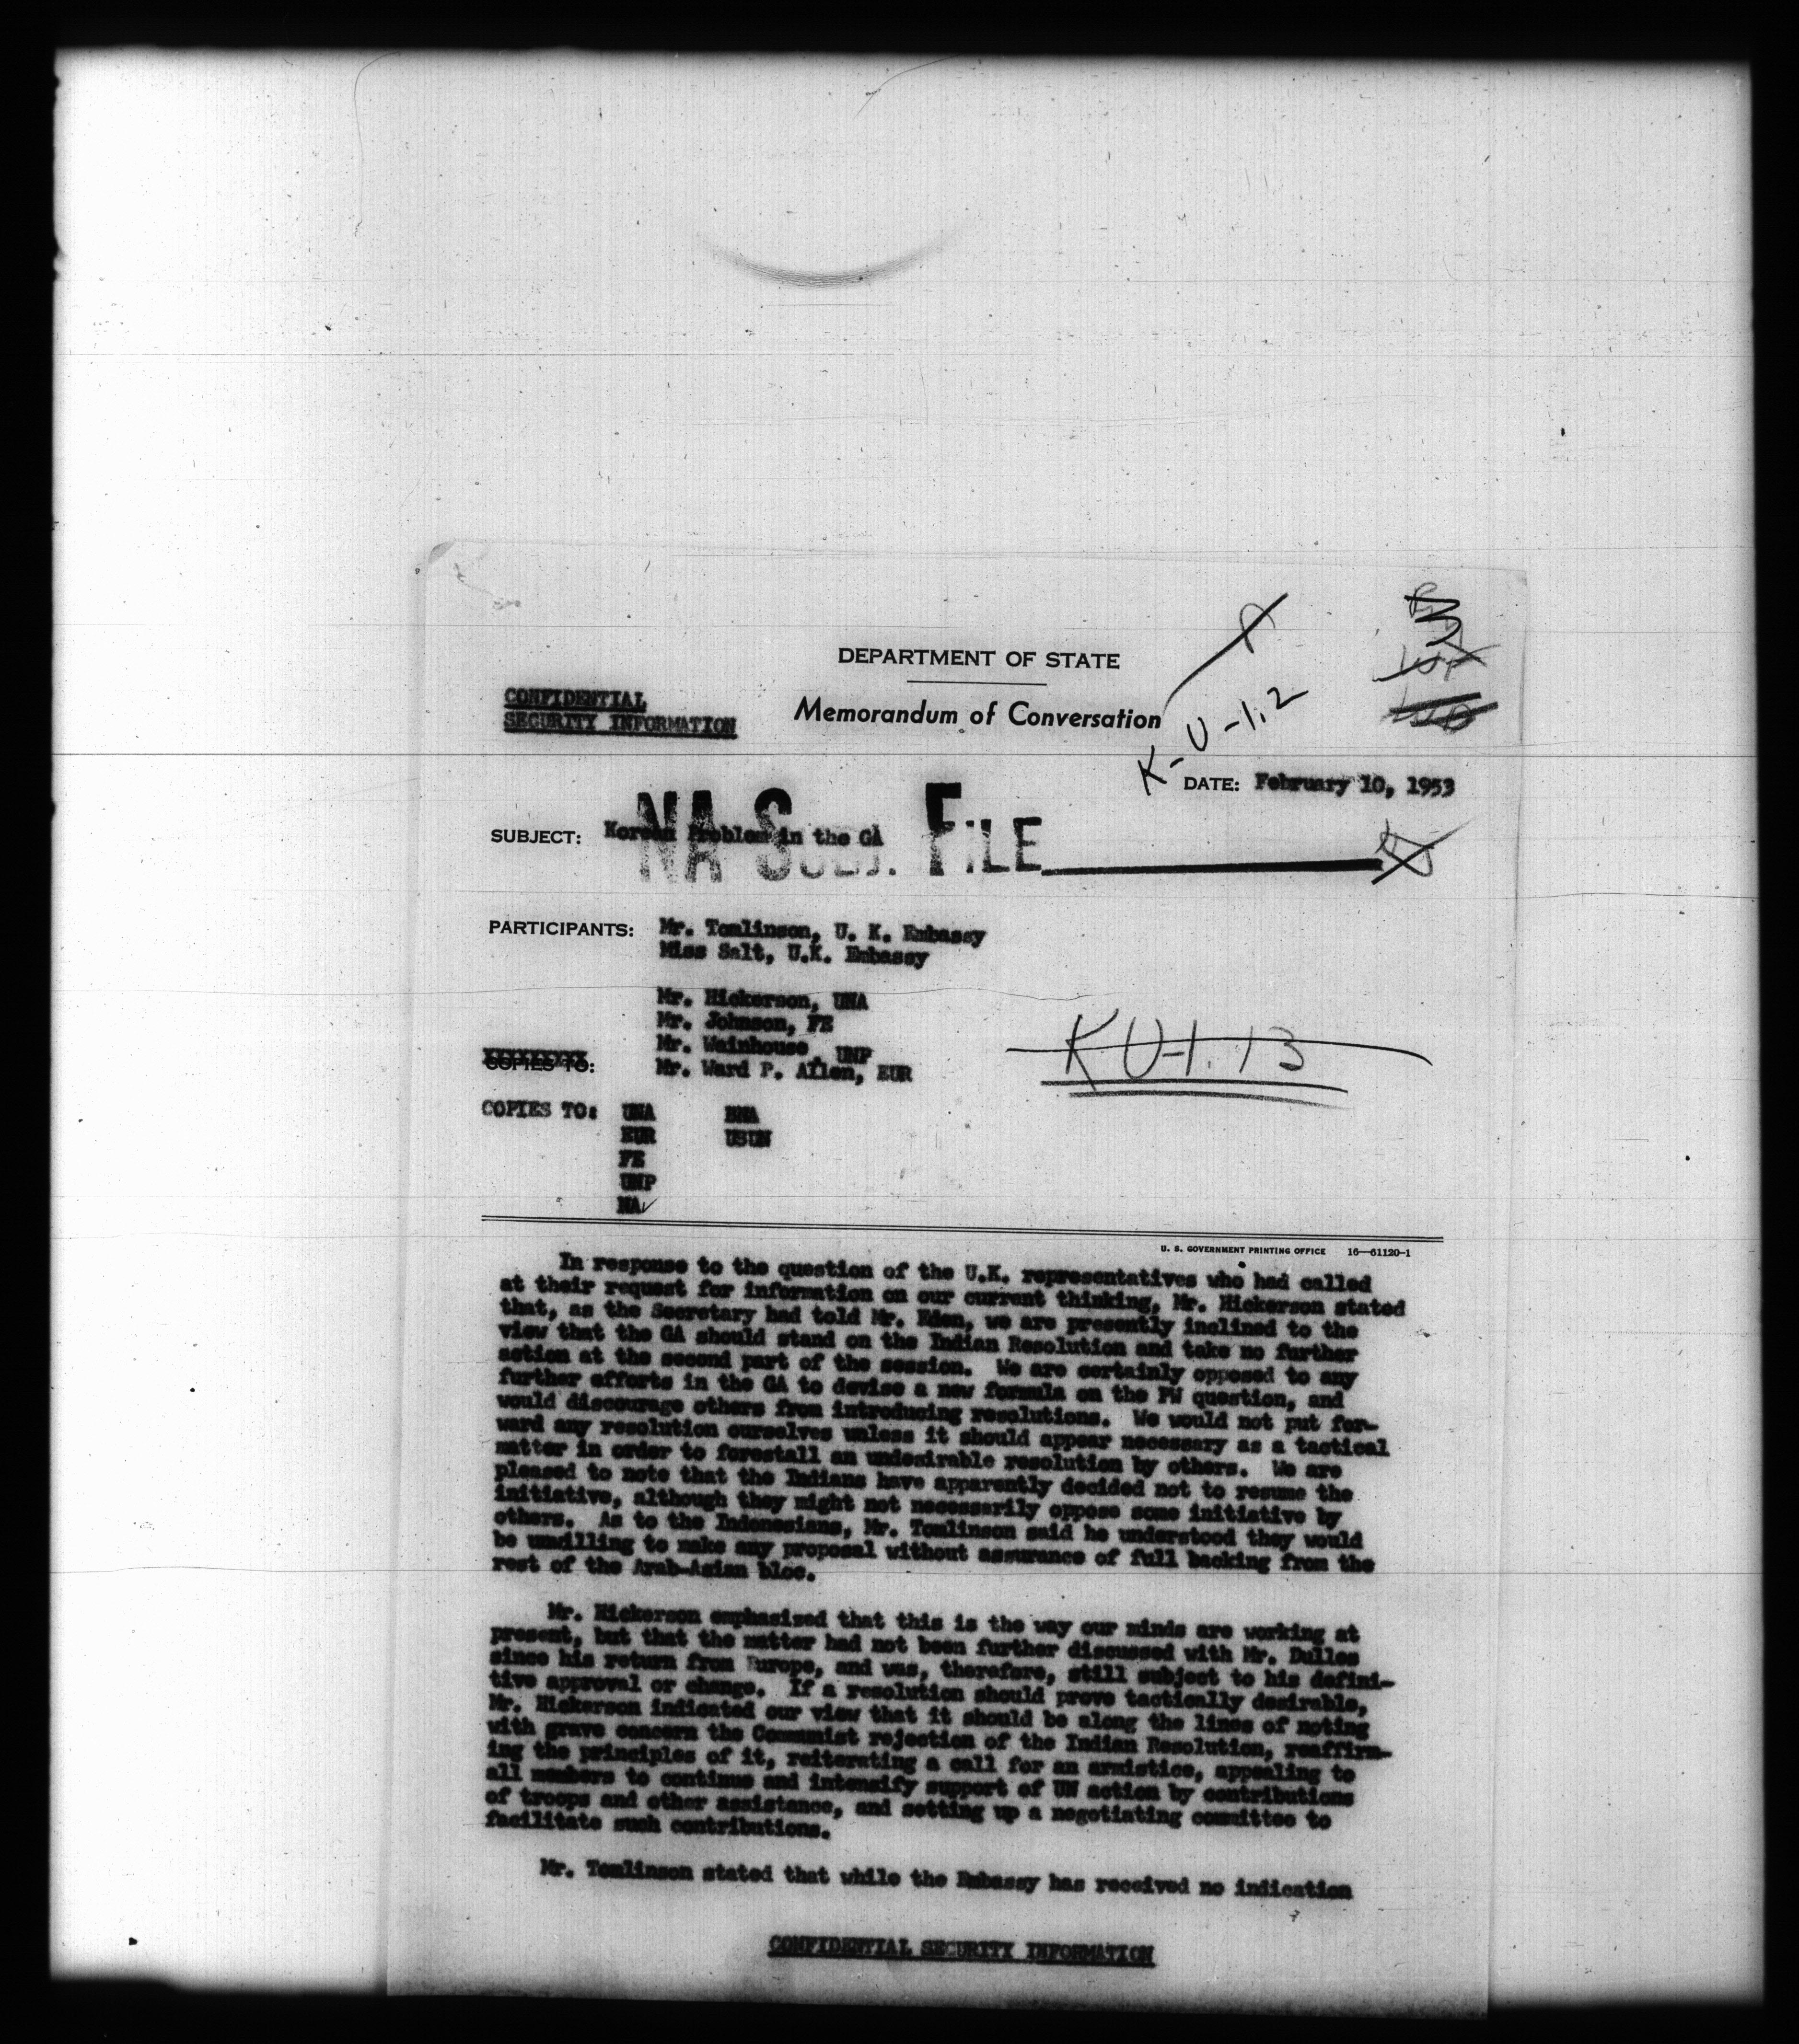 DEPARTMENT OF STATE
CONFIDENTIAL
SECURITY INFORMATION
Memorandum of Conversation
K-U-1.2
DATE: February 10, 1953
SUBJECT: Korean Problem in the GA
NA SUBJ. FILE
PARTICIPANTS: Mr. Tomlinson, U. K. Embassy
Miss Salt, U.K. Embassy
Mr. Hickerson, UNA
Mr. Johnson, FE
Mr. Wainhouse, UNP
Mr. Ward P. Allen, EUR
COPIES TO:
KU-1.13
COPIES TO: UNA BNA
EUR USUN
FE
UNP
NA✓
U. S. GOVERNMENT PRINTING OFFICE 16—61120-1
In response to the question of the U.K. representatives who had called
at their request for information on our current thinking, Mr. Hickerson stated
that, as the Secretary had told Mr. Eden, we are presently inclined to the
view that the GA should stand on the Indian Resolution and take no further
action at the second part of the session. We are certainly opposed to any
further efforts in the GA to devise a new formula on the PW question, and
would discourage others from introducing resolutions. We would not put for-
ward any resolution ourselves unless it should appear necessary as a tactical
matter in order to forestall an undesirable resolution by others. We are
pleased to note that the Indians have apparently decided not to resume the
initiative, although they might not necessarily oppose some initiative by
others. As to the Indonesians, Mr. Tomlinson said he understood they would
be unwilling to make any proposal without assurance of full backing from the
rest of the Arab-Asian bloc.
Mr. Hickerson emphasized that this is the way our minds are working at
present, but that the matter had not been further discussed with Mr. Dulles
since his return from Europe, and was, therefore, still subject to his defini-
tive approval or change. If a resolution should prove tactically desirable,
Mr. Hickerson indicated our view that it should be along the lines of noting
with grave concern the Communist rejection of the Indian Resolution, reaffirm-
ing the principles of it, reiterating a call for an armistice, appealing to
all members to continue and intensify support of UN action by contributions
of troops and other assistance, and setting up a negotiating committee to
facilitate such contributions.
Mr. Tomlinson stated that while the Embassy has received no indication
CONFIDENTIAL SECURITY INFORMATION